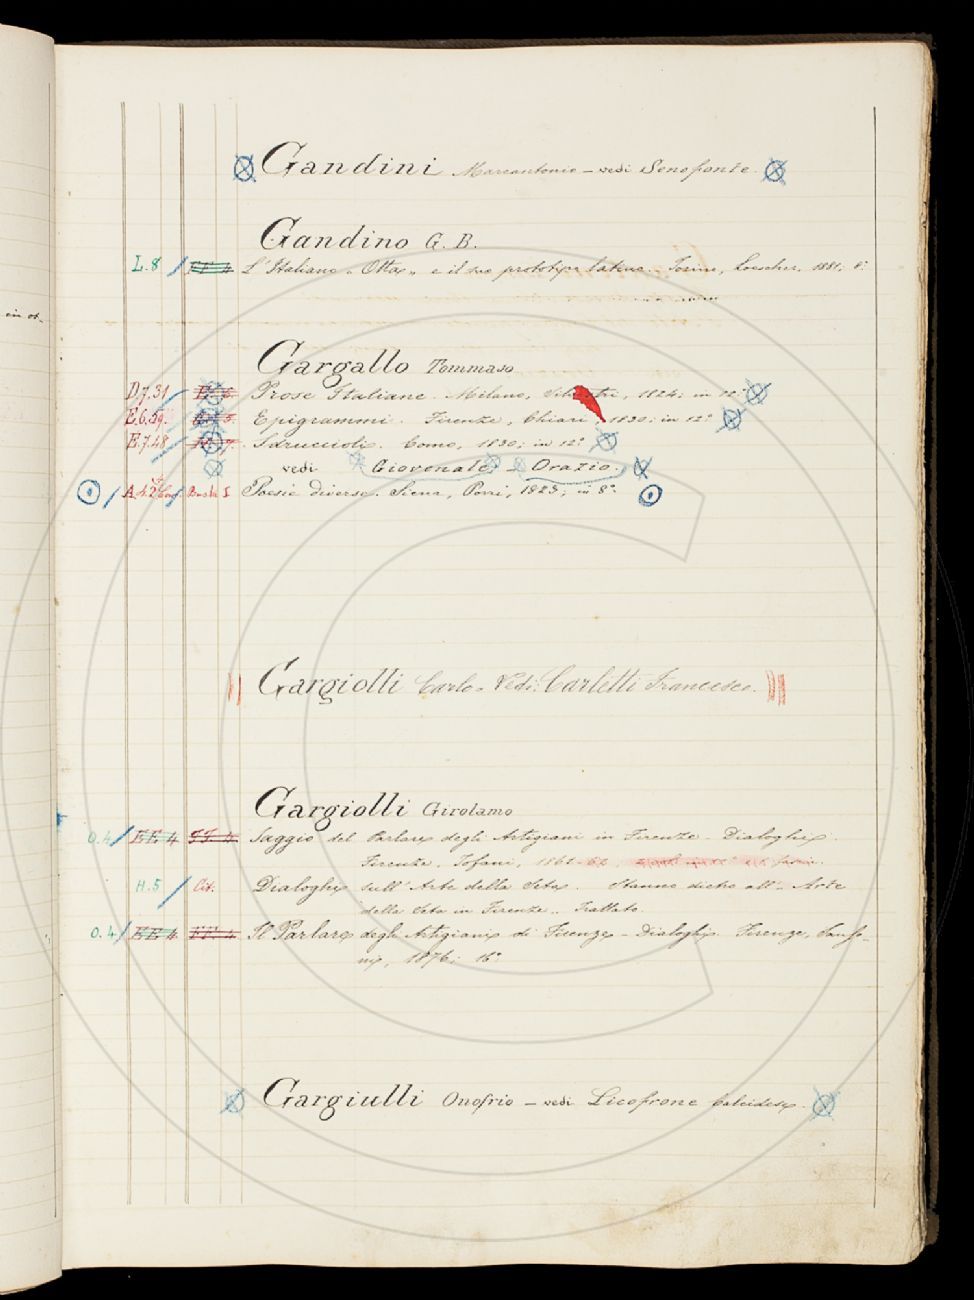 in ot.
Gandini Marcantonio – vedi Senofonte.
Gandino G. B.
L.8 / L'Italiano „ Otta „ e il suo prototipo latino. Torino, Loescher, 1881; 8°
Gargallo Tommaso
D.7.31 Prose Italiane. Milano, 1824; in 12°
E.6.59. Epigrammi. Firenze, Chiari, 1830; in 12°
E.7.48 Sdrucciole. Como, 1830; in 12°
vedi Giovenale – Orazio.
A. 4. 2 Busta I Poesie diverse. Siena, Porri, 1823; in 8°
Gargiolli Carlo – Vedi: Carletti Francesco.
Gargiolli Girolamo
O.4 / EE 4 FF 4 Saggio del Parlare degli Artigiani in Firenze – Dialoghi.
Firenze, Tofani, 1861–62.
H.5 / Cit. Dialoghi sull'Arte della Seta. Stanno dietro all'„ Arte
della Seta in Firenze „. Trattato.
O.4 / EE 4 FF 4 Il Parlare degli Artigiani di Firenze – Dialoghi. Firenze, Sanso-
ni, 1876; 16°
Gargiulli Onofrio – vedi Licofrone Calcidese.